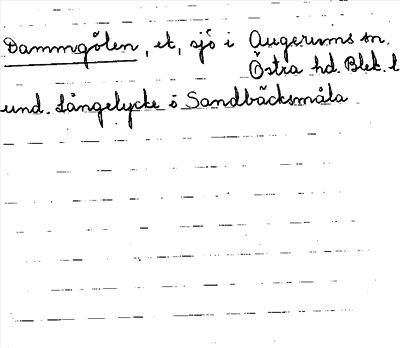 Dammgölen, et, sjö i Augerums sn.
Östra hd. Blek. l
und. Långelycke o Sandbäcksmåla